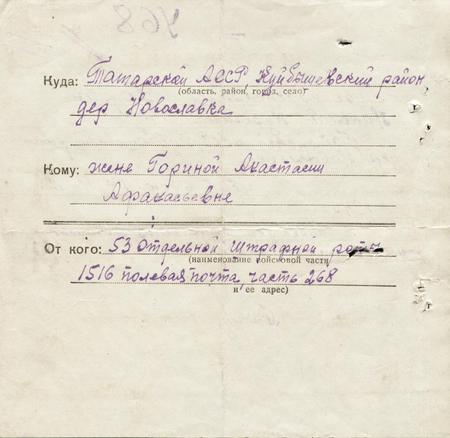 Куда: Татарской АССР Куйбышевский район
(область, район, город, село)
дер Новославка
Кому: жене Гориной Анастасии
Афанасьевне
От кого: 53 Отдельной Штрафной роты
(наименование войсковой части
1516 полевая почта часть 268
и ее адрес)